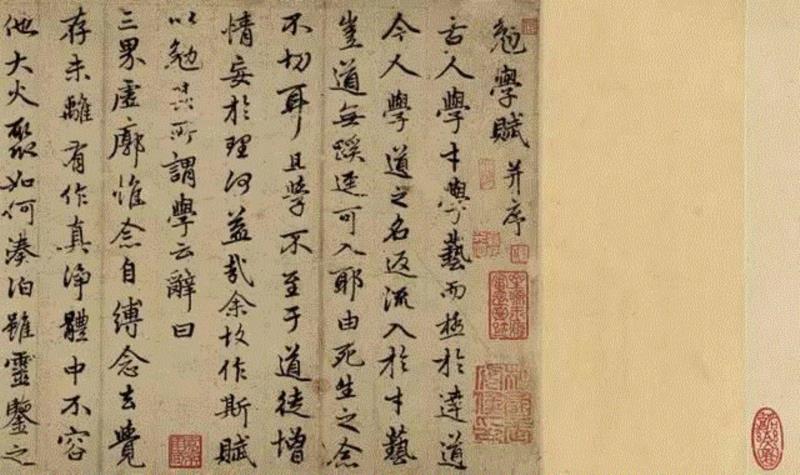 勉學賦 并序
古人學才學藝而極於達道
今人學道之名返流入於才藝
豈道無蹊逕可入耶由死生之念
不切耳且學不至于道徒增
情妄於理何益哉余故作斯賦
以勉其所謂學云辭曰
三界虛廓惟念自縛念去覺
存未離有作真淨體中不容
他大火聚如何湊泊雖靈鑒之